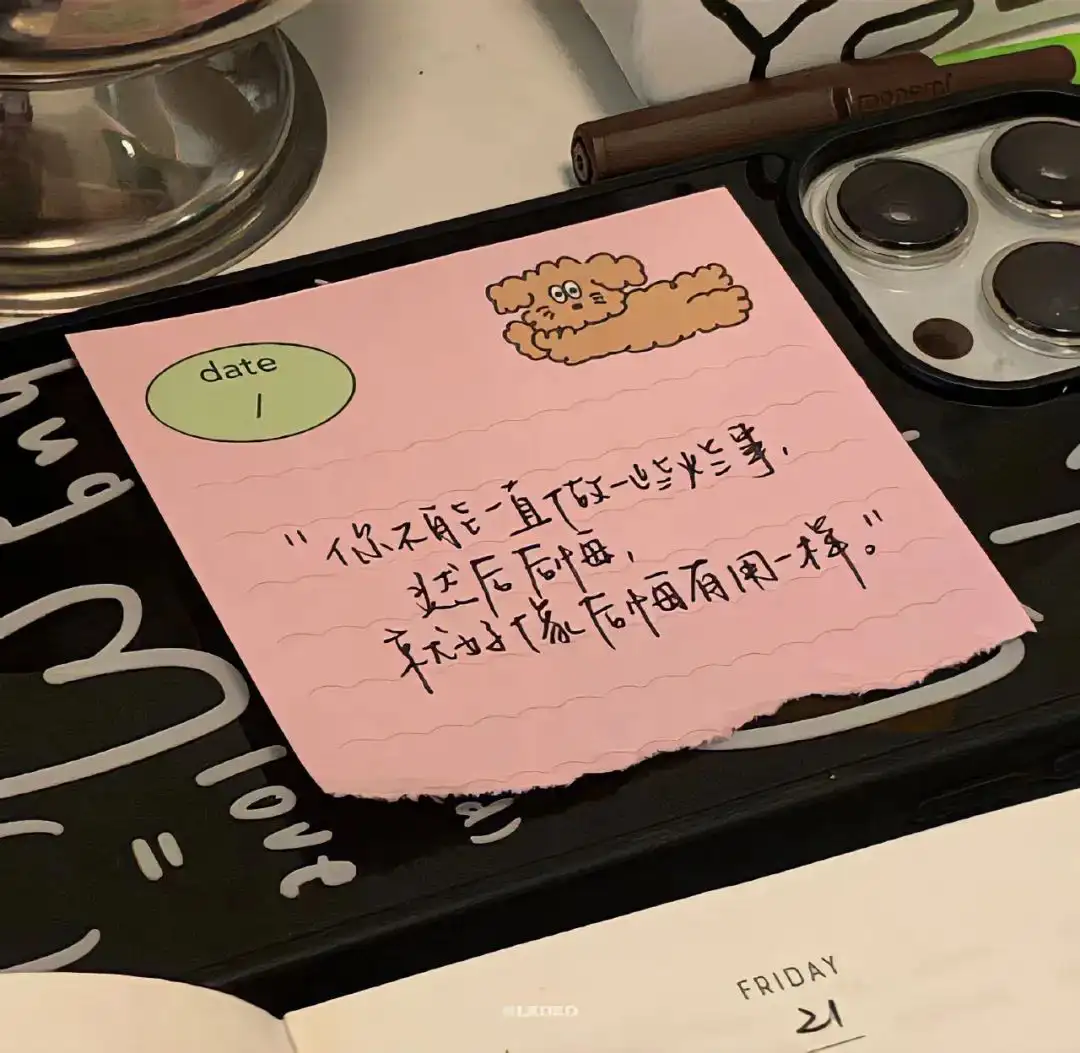 monami
date
/
"你不能一直做一些烂事,
然后后悔,
就好像后悔有用一样。"
hug
love
FRIDAY
21